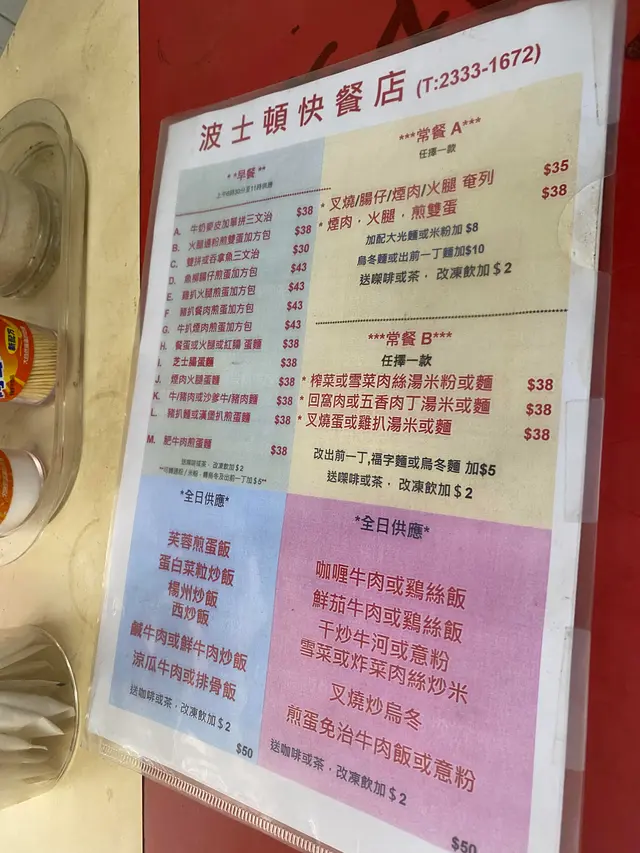 波士頓快餐店 (T:2333-1672)
**早餐**
A. 牛奶麥皮加單拼三文治 $38
B. 火腿通粉煎雙蛋加方包 $38
C. 雙拼或吞拿魚三文治 $30
D. 魚柳腸仔煎蛋加方包 $43
E. 雞扒火腿煎蛋加方包 $43
F 豬扒餐肉煎蛋加方包 $43
G. 牛扒煙肉煎蛋加方包 $43
H. 餐蛋或火腿或紅腸 蛋麵 $38
I. 芝士腸蛋麵 $38
J. 煙肉火腿蛋麵 $38
K. 牛/豬肉或沙爹牛/豬肉麵 $38
L. 豬扒麵或漢堡扒煎蛋麵 $38
M. 肥牛肉煎蛋麵 $38
送咖啡或茶．改凍飲加$2
***常餐 A***
任擇一款
* 叉燒/腸仔/煙肉/火腿 奄列 $35
* 煙肉．火腿．煎雙蛋 $38
加配大光麵或米粉加 $8
烏冬麵或出前一丁麵加$10
送㗎啡或茶．改凍飲加$2
***常餐 B***
任擇一款
* 榨菜或雪菜肉絲湯米粉或麵 $38
* 回窩肉或五香肉丁湯米或麵 $38
* 叉燒蛋或雞扒湯米或麵 $38
改出前一丁,福字麵或烏冬麵 加$5
送㗎啡或茶．改凍飲加$2
*全日供應*
芙蓉煎蛋飯
蛋白菜粒炒飯
楊州炒飯
西炒飯
鹹牛肉或鮮牛肉炒飯
凉瓜牛肉或排骨飯
送咖啡或茶．改凍飲加$2
$50
*全日供應*
咖喱牛肉或鷄絲飯
鮮茄牛肉或鷄絲飯
干炒牛河或意粉
雪菜或炸菜肉絲炒米
叉燒炒烏冬
煎蛋免治牛肉飯或意粉
送咖啡或茶．改凍飲加$2
$50